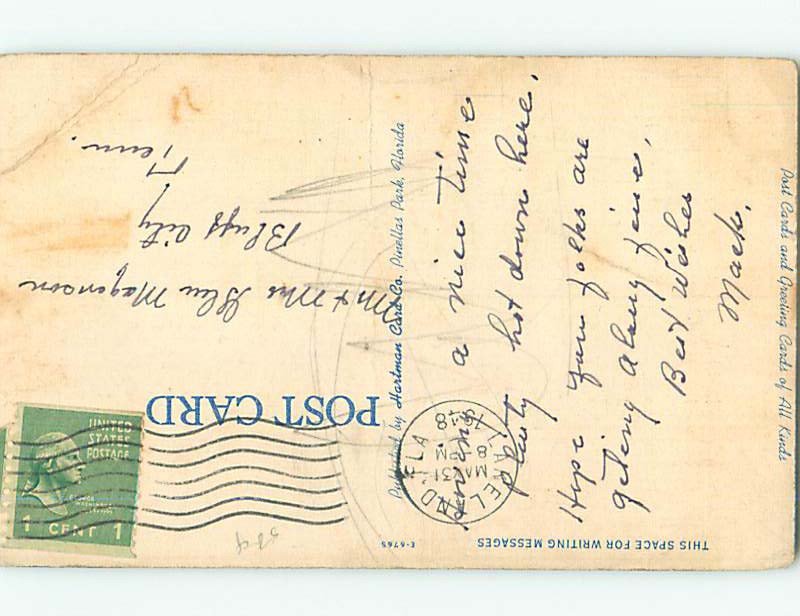 POST CARD
THIS SPACE FOR WRITING MESSAGES
E-6765
Having a nice time
plenty hot down here.
Hope you folks are
geting along fine.
Best Wishes
Mack.
Published by Hartman Card Co. Pinellas Park, Florida
Post Cards and Greeting Cards of All Kinds
Mr + Mrs Glen
Bluff City
Tenn.
LAKELAND
FLA
MAR 31
8 PM
UNITED
STATES
POSTAGE
GEORGE
WASHINGTON
1 CENT 1